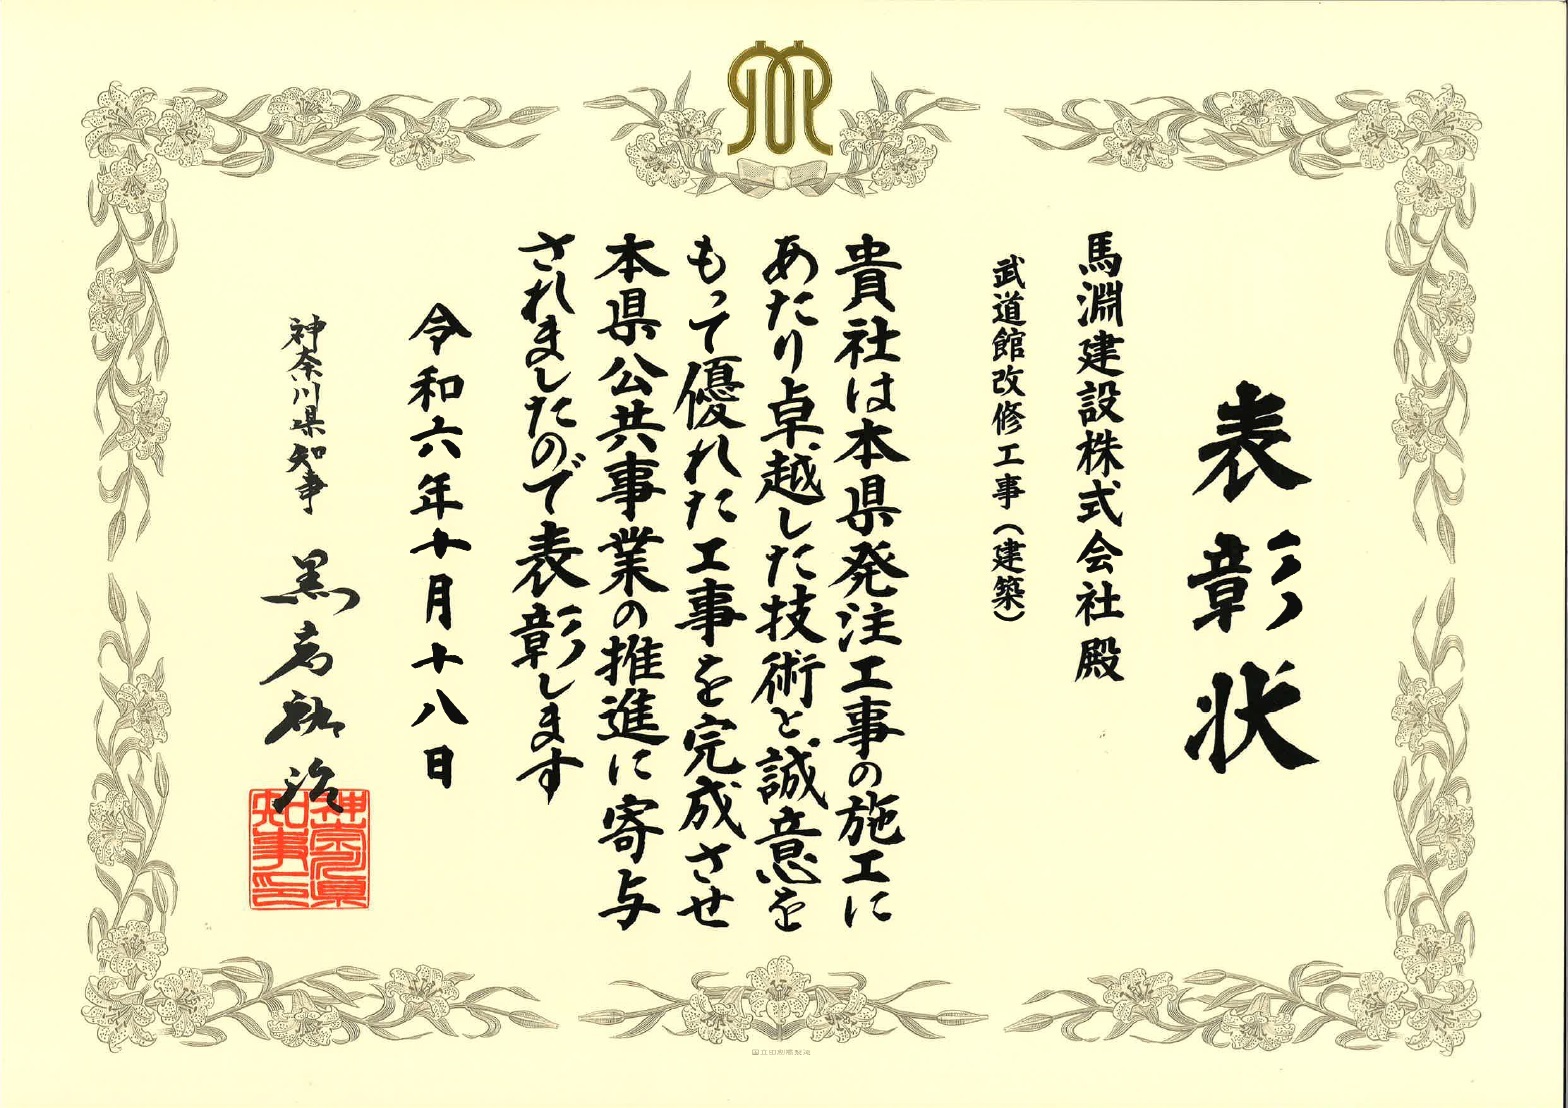 表彰状
馬淵建設株式会社殿
武道館改修工事（建築）
貴社は本県発注工事の施工に
あたり卓越した技術と誠意を
もって優れた工事を完成させ
本県公共事業の推進に寄与
されましたので表彰します
令和六年十月十八日
神奈川県知事 黒岩祐治
神奈川県
知事印